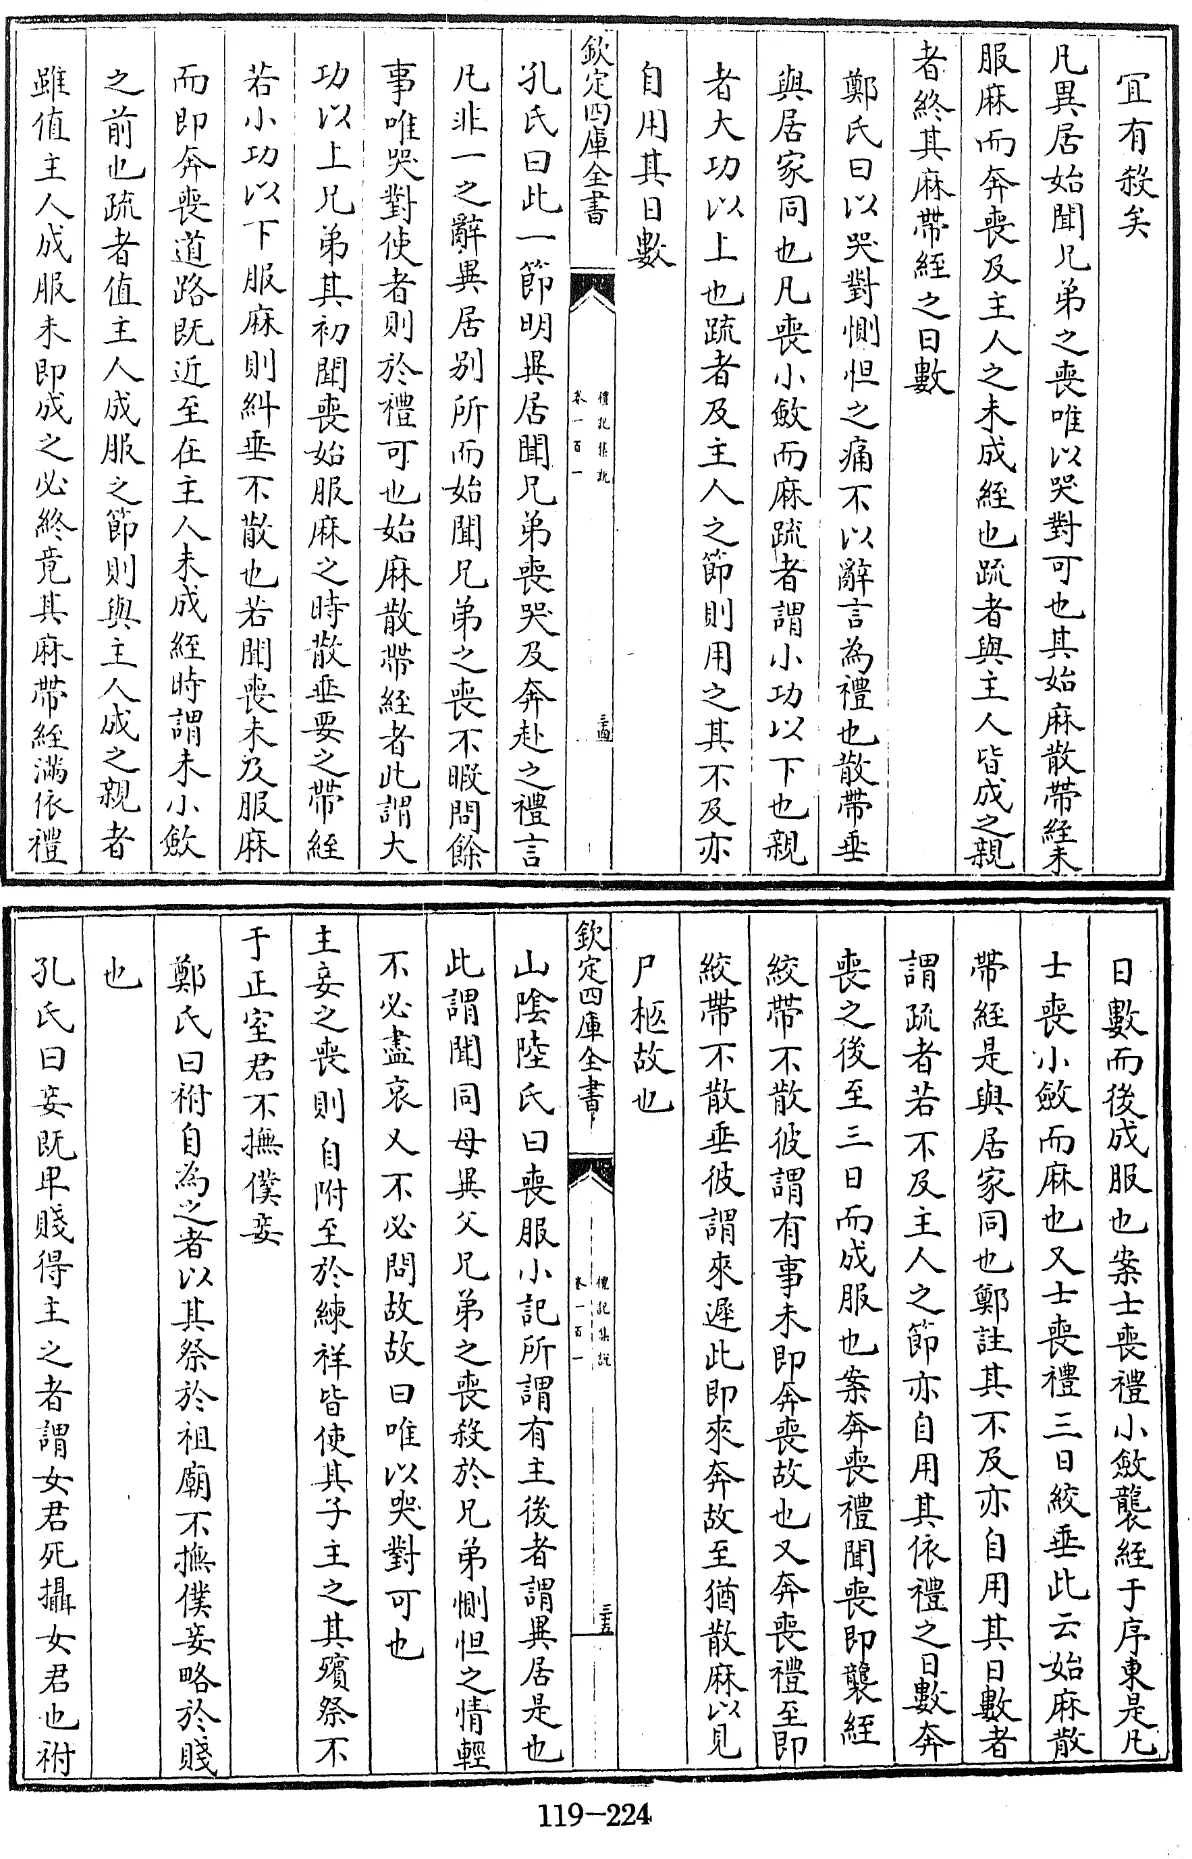 宜有殺矣
凡異居始聞兄弟之喪唯以哭對可也其始麻散帶絰未
服麻而奔喪及主人之未成絰也疏者與主人皆成之親
者終其麻帶絰之日數
鄭氏曰以哭對惻怛之痛不以辭言為禮也散帶垂
與居家同也凡喪小斂而麻疏者謂小功以下也親
者大功以上也疏者及主人之節則用之其不及亦
自用其日數
欽定四庫全書
禮記集說
卷一百一
三十四
孔氏曰此一節明異居聞兄弟喪哭及奔赴之禮言
凡非一之辭異居别所而始聞兄弟之喪不暇問餘
事唯哭對使者則於禮可也始麻散帶絰者此謂大
功以上兄弟其初聞喪始服麻之時散垂要之帶絰
若小功以下服麻則糾垂不散也若聞喪未及服麻
而即奔喪道路既近至在主人未成絰時謂未小斂
之前也疏者值主人成服之節則與主人成之親者
雖值主人成服未即成之必終竟其麻帶絰滿依禮
日數而後成服也案士喪禮小斂襲絰于序東是凡
士喪小斂而麻也又士喪禮三日絞垂此云始麻散
帶絰是與居家同也鄭註其不及亦自用其日數者
謂疏者若不及主人之節亦自用其依禮之日數奔
喪之後至三日而成服也案奔喪禮聞喪即襲絰
絞帶不散彼謂有事未即奔喪故也又奔喪禮至即
絞帶不散垂彼謂來遲此即來奔故至猶散麻以見
尸柩故也
欽定四庫全書
禮記集說
卷一百一
三十五
山陰陸氏曰喪服小記所謂有主後者謂異居是也
此謂聞同母異父兄弟之喪殺於兄弟惻怛之情輕
不必盡哀又不必問故故曰唯以哭對可也
主妾之喪則自附至於練祥皆使其子主之其殯祭不
于正室君不撫僕妾
鄭氏曰祔自為之者以其祭於祖廟不撫僕妾略於賤
也
孔氏曰妾既卑賤得主之者謂女君死攝女君也祔
119-224